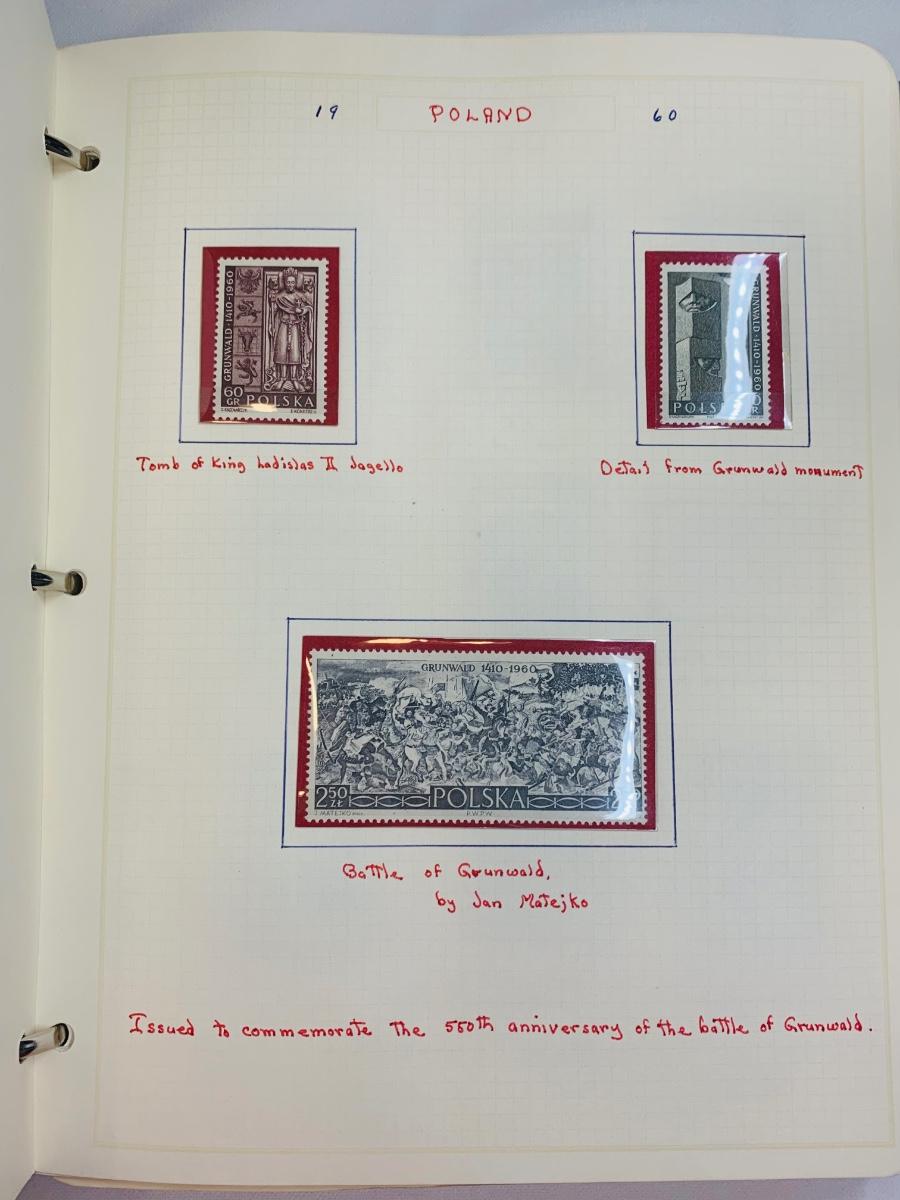 19 POLAND 60
GRUNWALD · 1410-1960
60 GR POLSKA
GRUNWALD · 1410-1960
POLS
Tomb of King Ladislas II Jagello
Detail from Grunwald monument
GRUNWALD 1410-1960
250 ZŁ POLSKA
J. MATEJKO P.W.P.W.
Battle of Grunwald,
by Jan Matejko
Issued to commemorate the 550th anniversary of the battle of Grunwald.